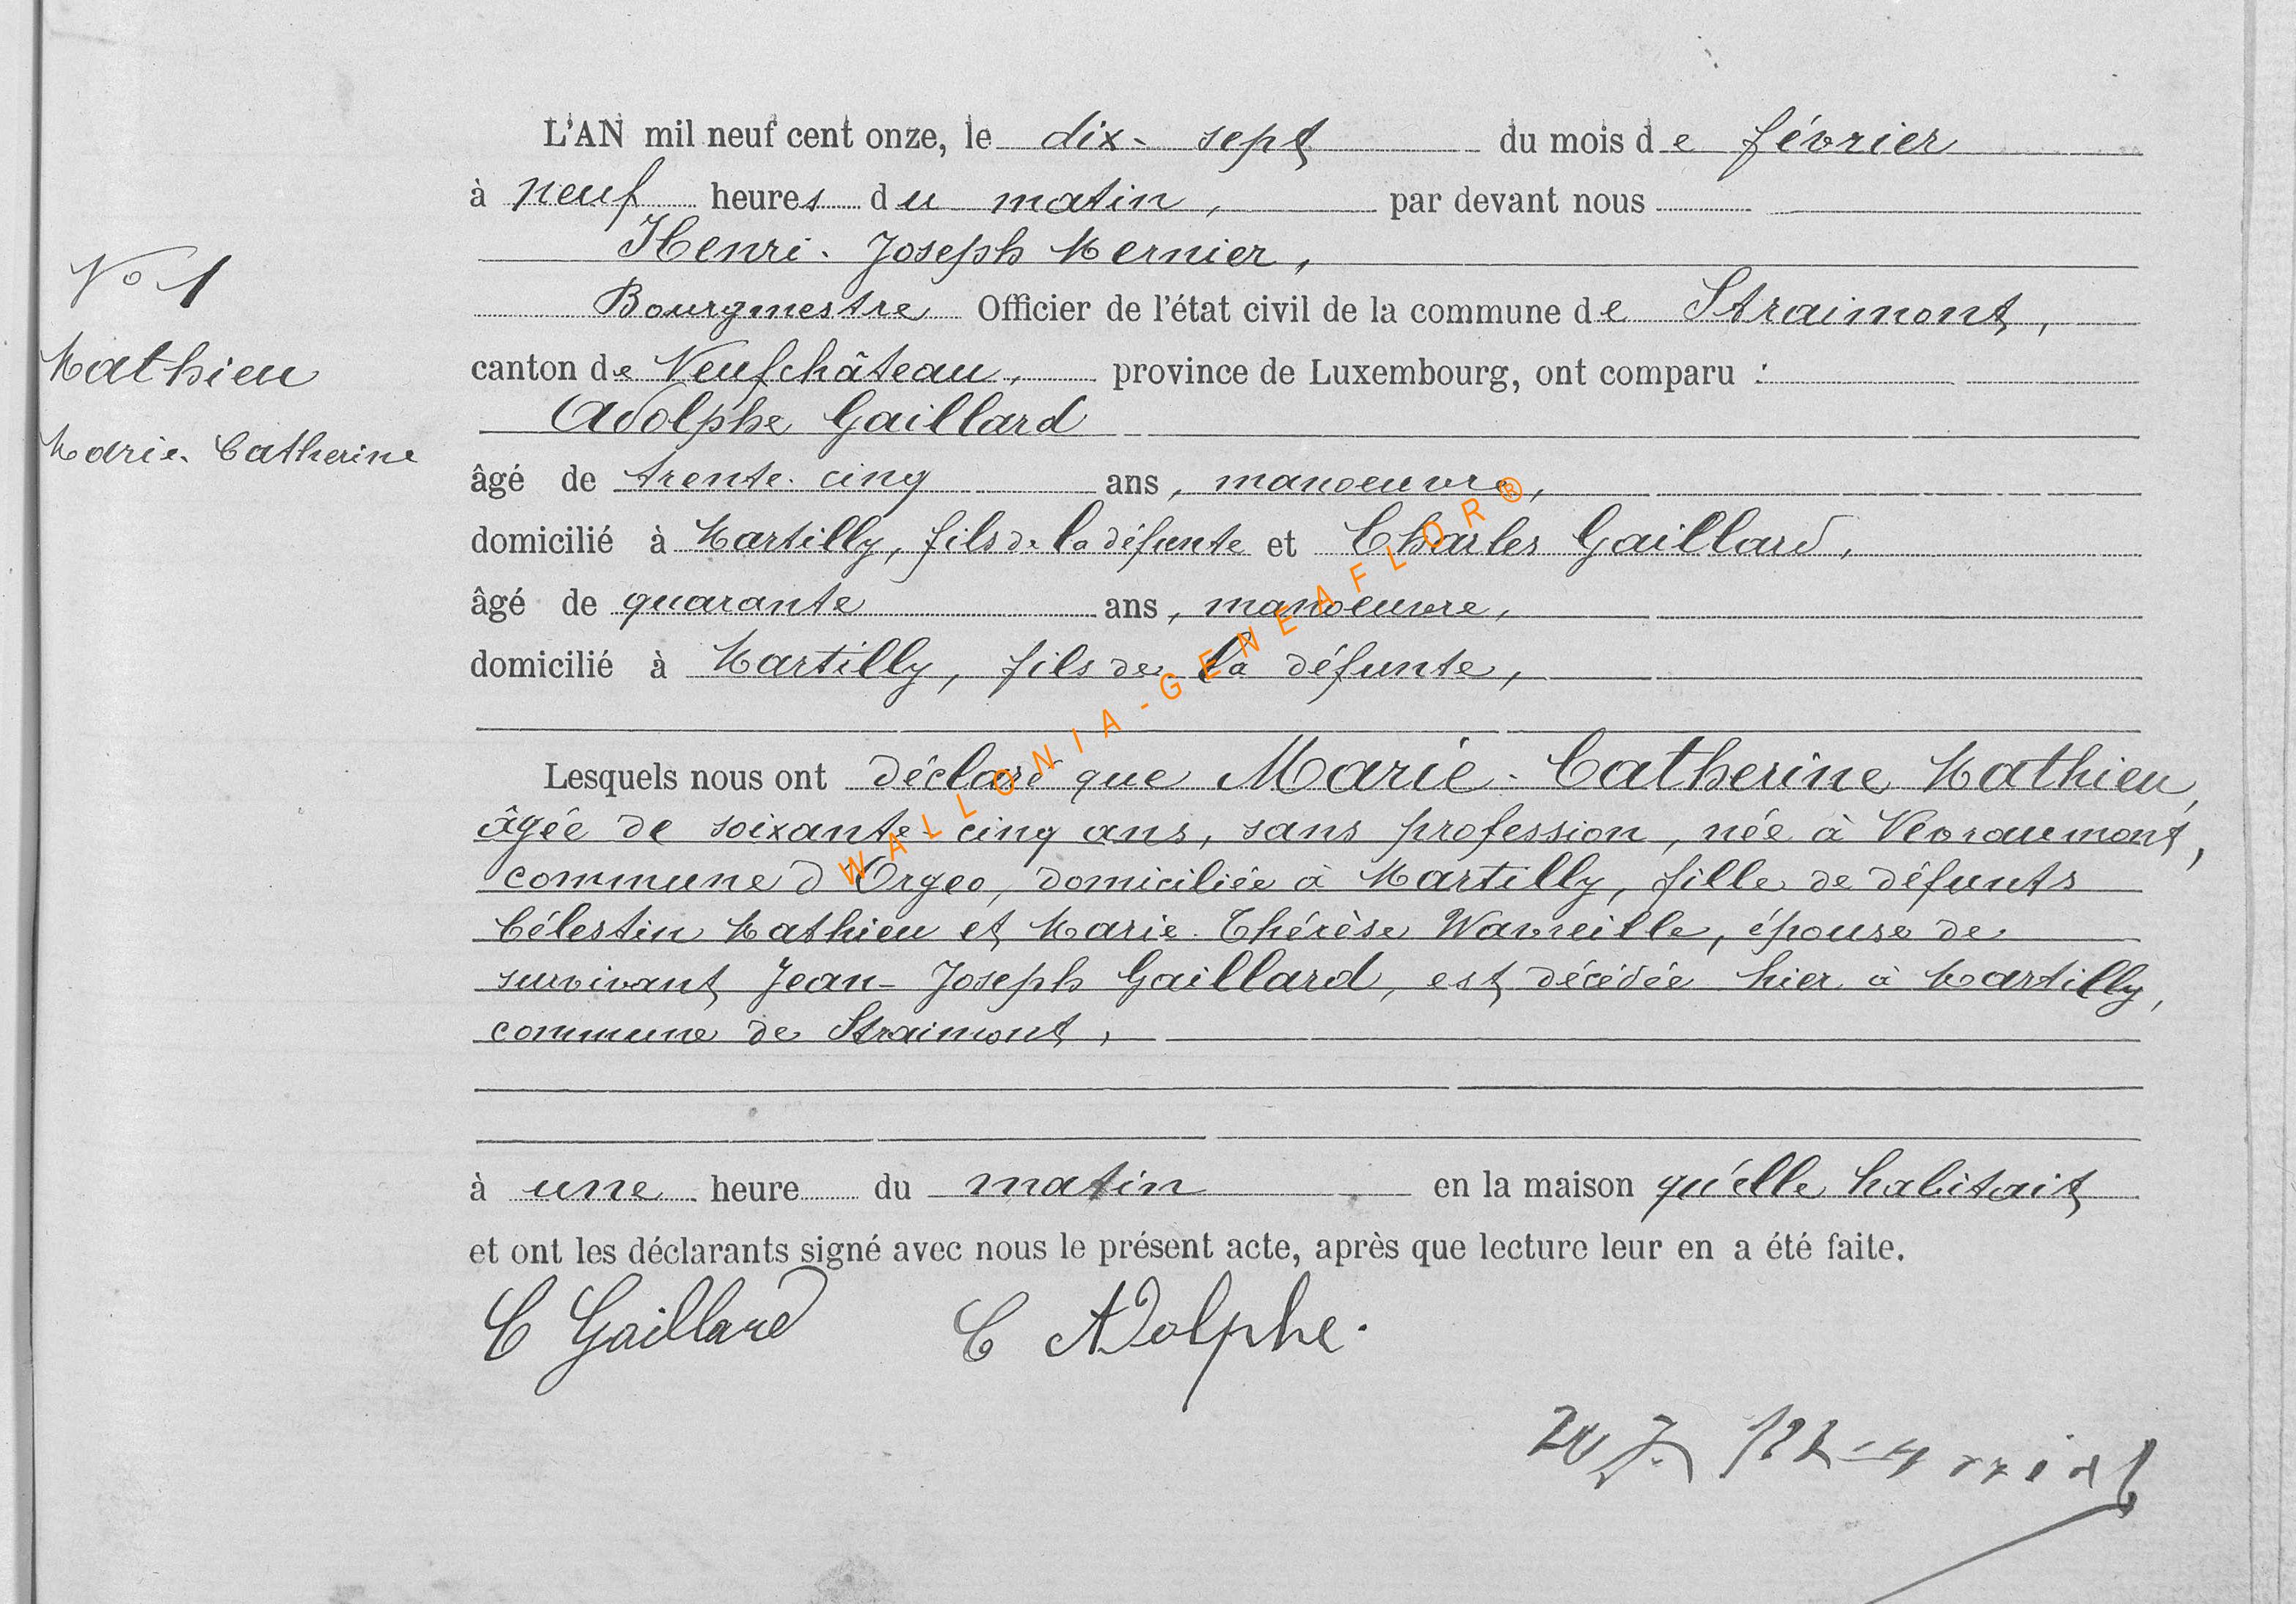 L'AN mil neuf cent onze, le dix-sept du mois de février
à neuf heures du matin, par devant nous
Henri-Joseph Mernier,
Bourgmestre Officier de l'état civil de la commune de Straimont,
canton de Neufchâteau, province de Luxembourg, ont comparu :
Adolphe Gaillard
âgé de trente-cinq ans, manoeuvre,
domicilié à Martilly, fils de la défunte et Charles Gaillard,
âgé de quarante ans, manoeuvre,
domicilié à Martilly, fils de la défunte,
N° 1
Mathieu
Marie-Catherine
Lesquels nous ont déclaré que Marie-Catherine Mathieu,
âgée de soixante-cinq ans, sans profession, née à Nevraumont,
commune d'Orgeo, domiciliée à Martilly, fille de défunts
Célestin Mathieu et Marie-Thérèse Wavreille, épouse de
survivant Jean-Joseph Gaillard, est décédée hier à Martilly,
commune de Straimont,
à une heure du matin en la maison qu'elle habitait
et ont les déclarants signé avec nous le présent acte, après que lecture leur en a été faite.
C Gaillard G Adolphe.
WALLONIA-GENEAFLOR®